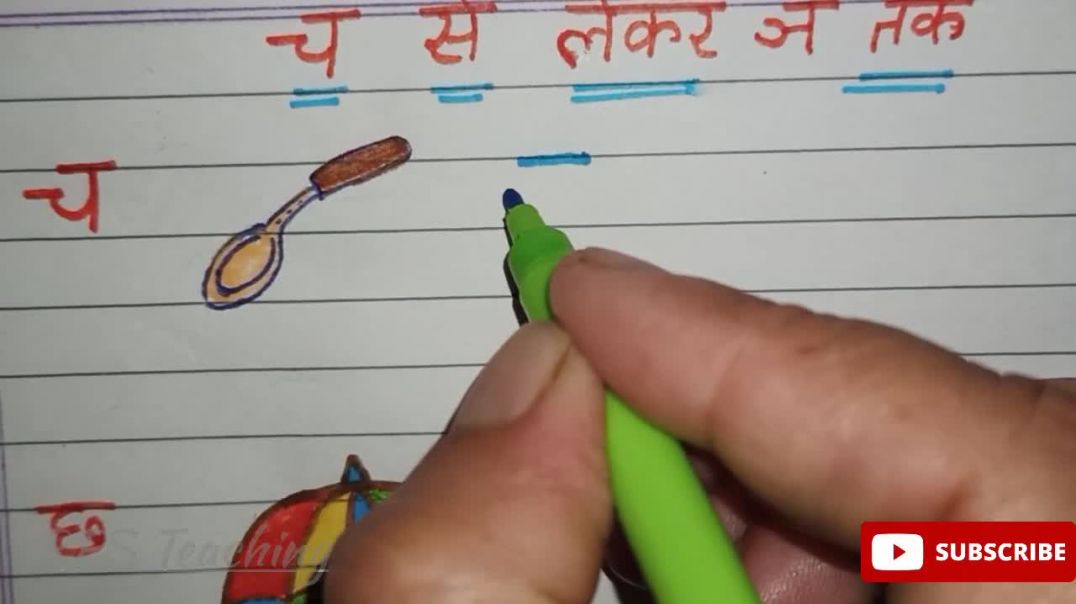 च से लेकर ञ तक
च
छ
S Teaching
SUBSCRIBE